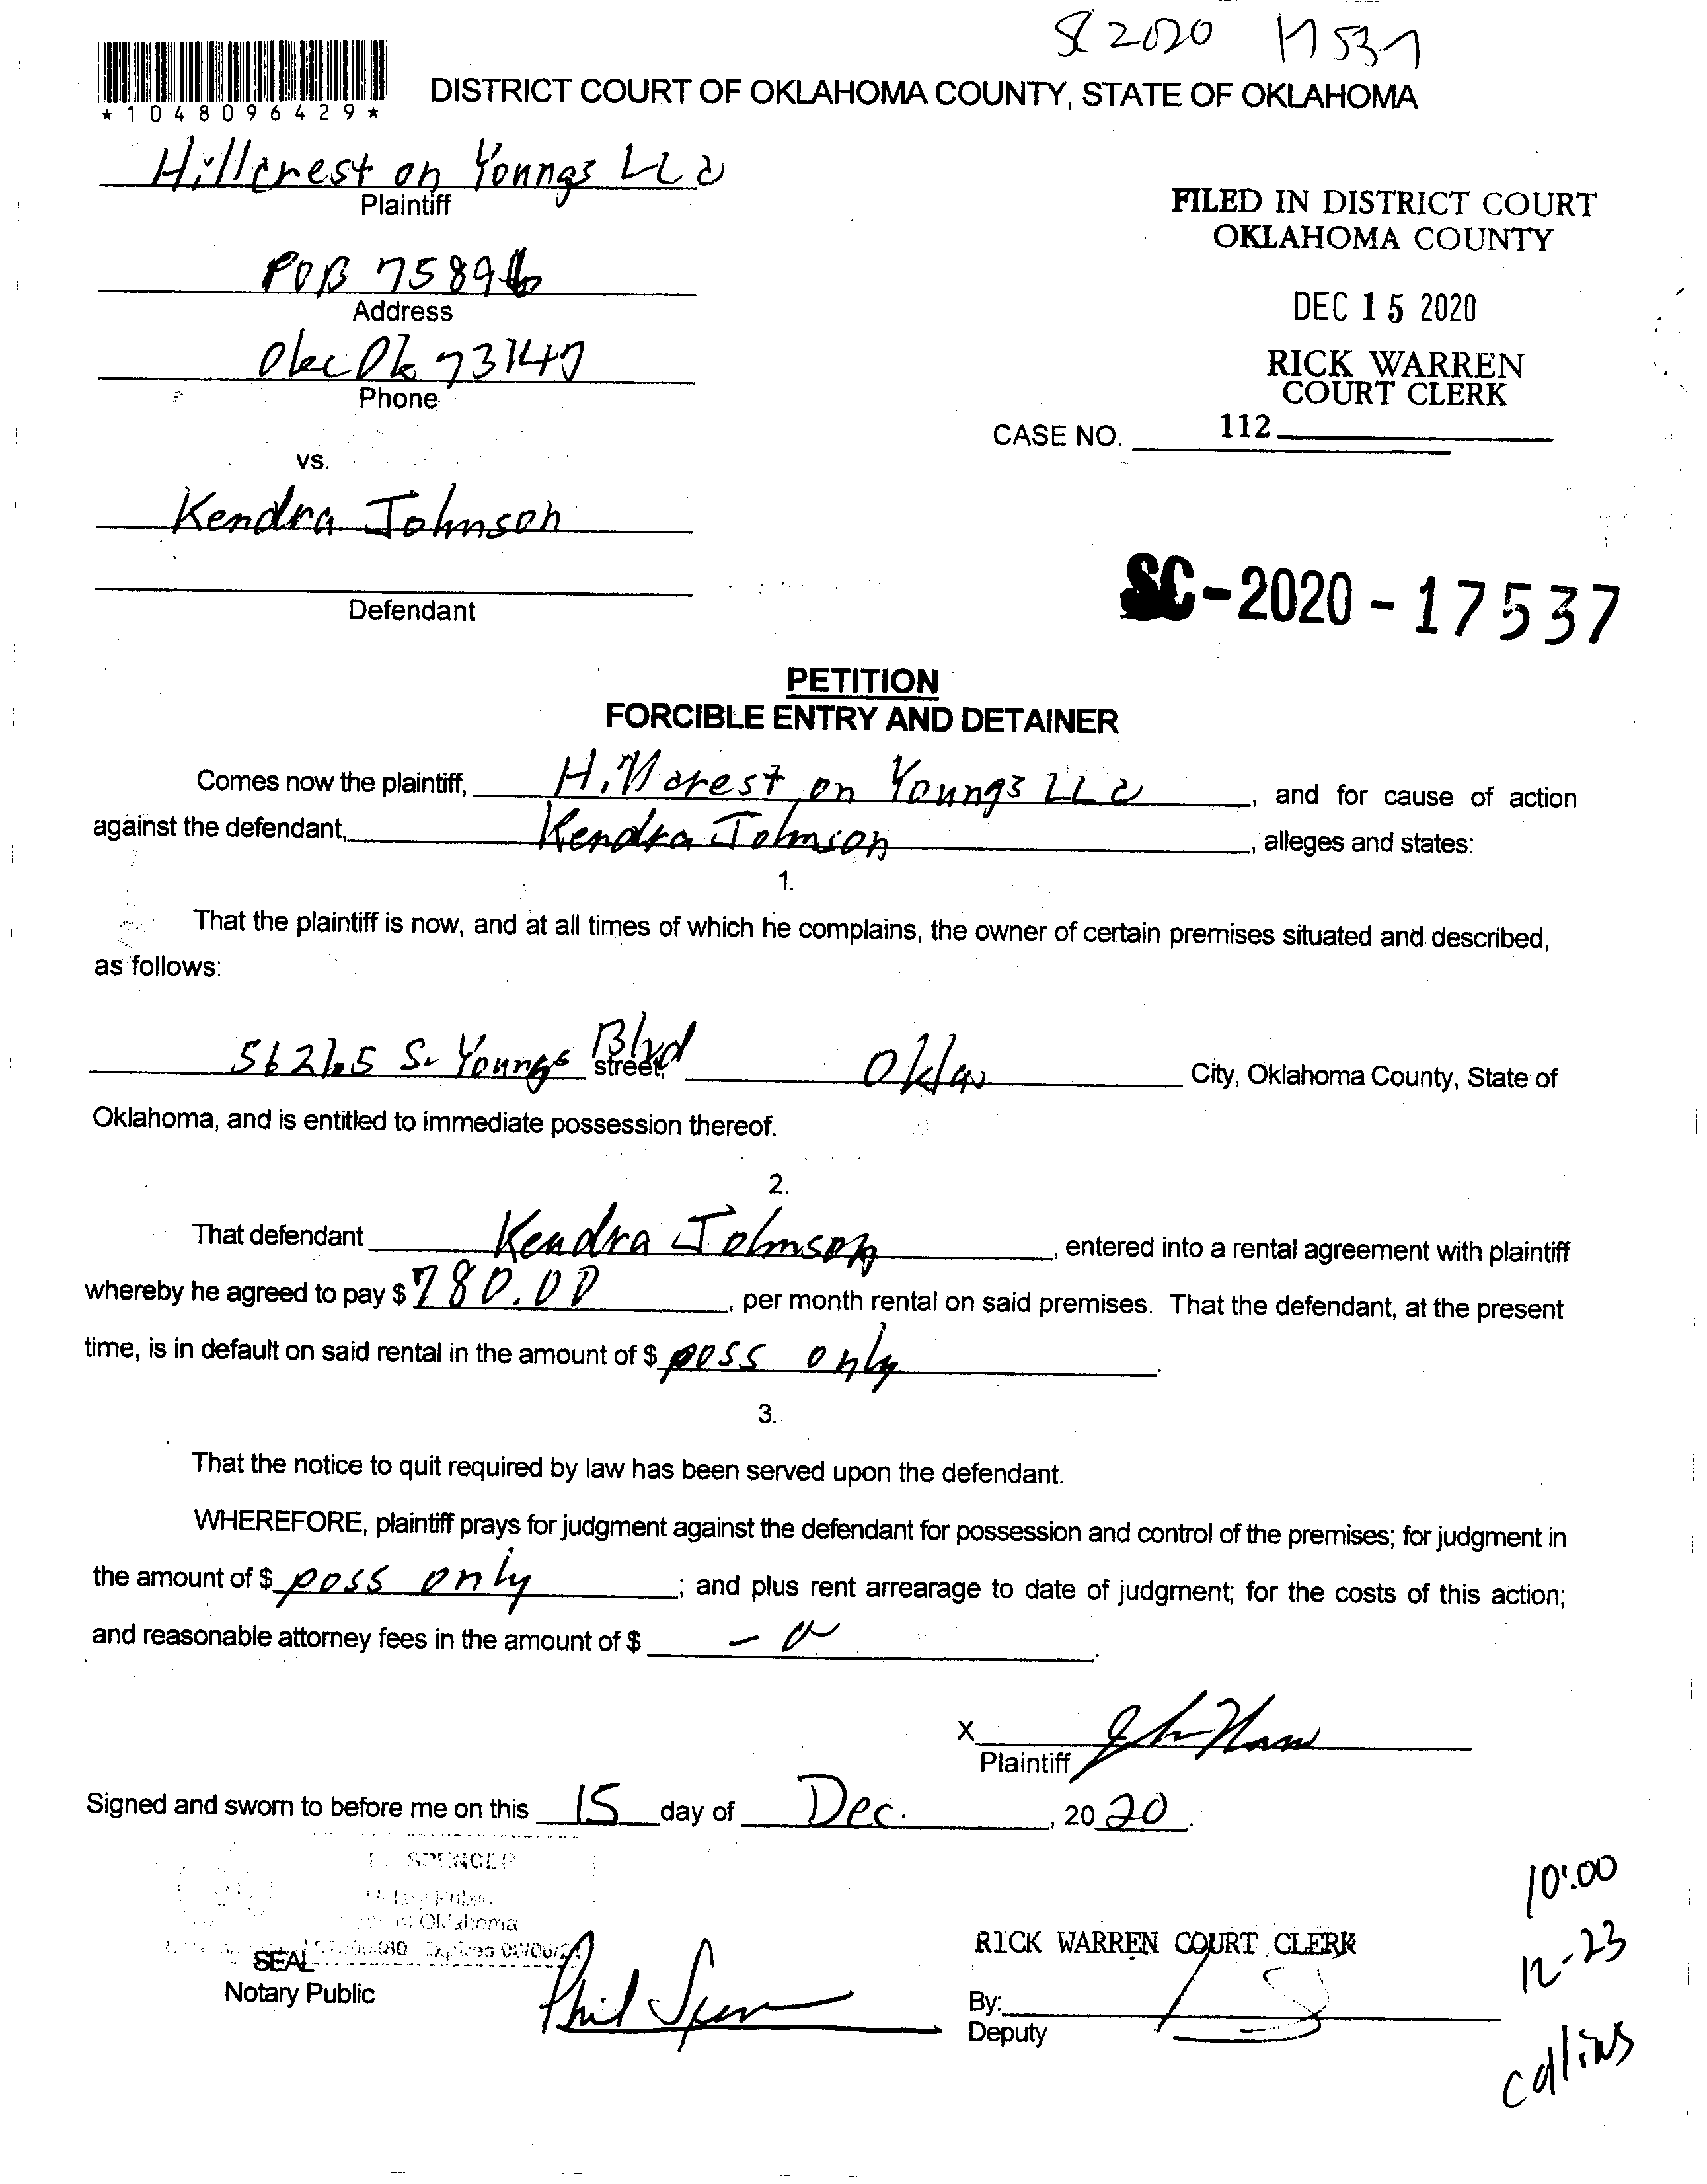 SC 2020 17537
*1048096429*
DISTRICT COURT OF OKLAHOMA COUNTY, STATE OF OKLAHOMA
Hillcrest on Youngs LLC
Plaintiff
FILED IN DISTRICT COURT
OKLAHOMA COUNTY
POB 75896
Address
DEC 15 2020
Okc Ok 73147
Phone
RICK WARREN
COURT CLERK
CASE NO. 112
vs.
Kendra Johnson
Defendant
SC-2020-17537
PETITION
FORCIBLE ENTRY AND DETAINER
Comes now the plaintiff, Hillcrest on Youngs LLC, and for cause of action
against the defendant, Kendra Johnson, alleges and states:
1.
That the plaintiff is now, and at all times of which he complains, the owner of certain premises situated and described,
as follows:
S. Youngs Blvd street, Okla City, Oklahoma County, State of
Oklahoma, and is entitled to immediate possession thereof.
2.
That defendant Kendra Johnson, entered into a rental agreement with plaintiff
whereby he agreed to pay $ 780.00, per month rental on said premises. That the defendant, at the present
time, is in default on said rental in the amount of $ poss only.
3.
That the notice to quit required by law has been served upon the defendant.
WHEREFORE, plaintiff prays for judgment against the defendant for possession and control of the premises; for judgment in
the amount of $ poss only; and plus rent arrearage to date of judgment; for the costs of this action;
and reasonable attorney fees in the amount of $ - 0.
X
Plaintiff
Signed and sworn to before me on this 15 day of Dec., 2020.
SPENCER
Notary Public
Oklahoma
Expires
10:00
RICK WARREN COURT CLERK
12-23
SEAL
Notary Public
Phil Spencer
By:
Deputy
Collins